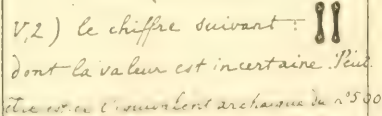 V,2) le chiffre suivant :
dont la valeur est incertaine. Peut-
être est-ce l'équivalent archaïque du n° 500